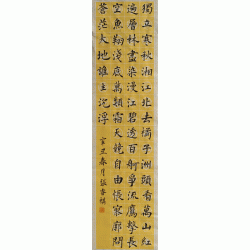 獨立寒秋湘江北去橘子洲頭看萬山紅
遍層林盡染漫江碧透百舸爭流鷹擊長
空魚翔淺底萬類霜天競自由悵寥廓問
蒼茫大地誰主沉浮
辛丑春月張